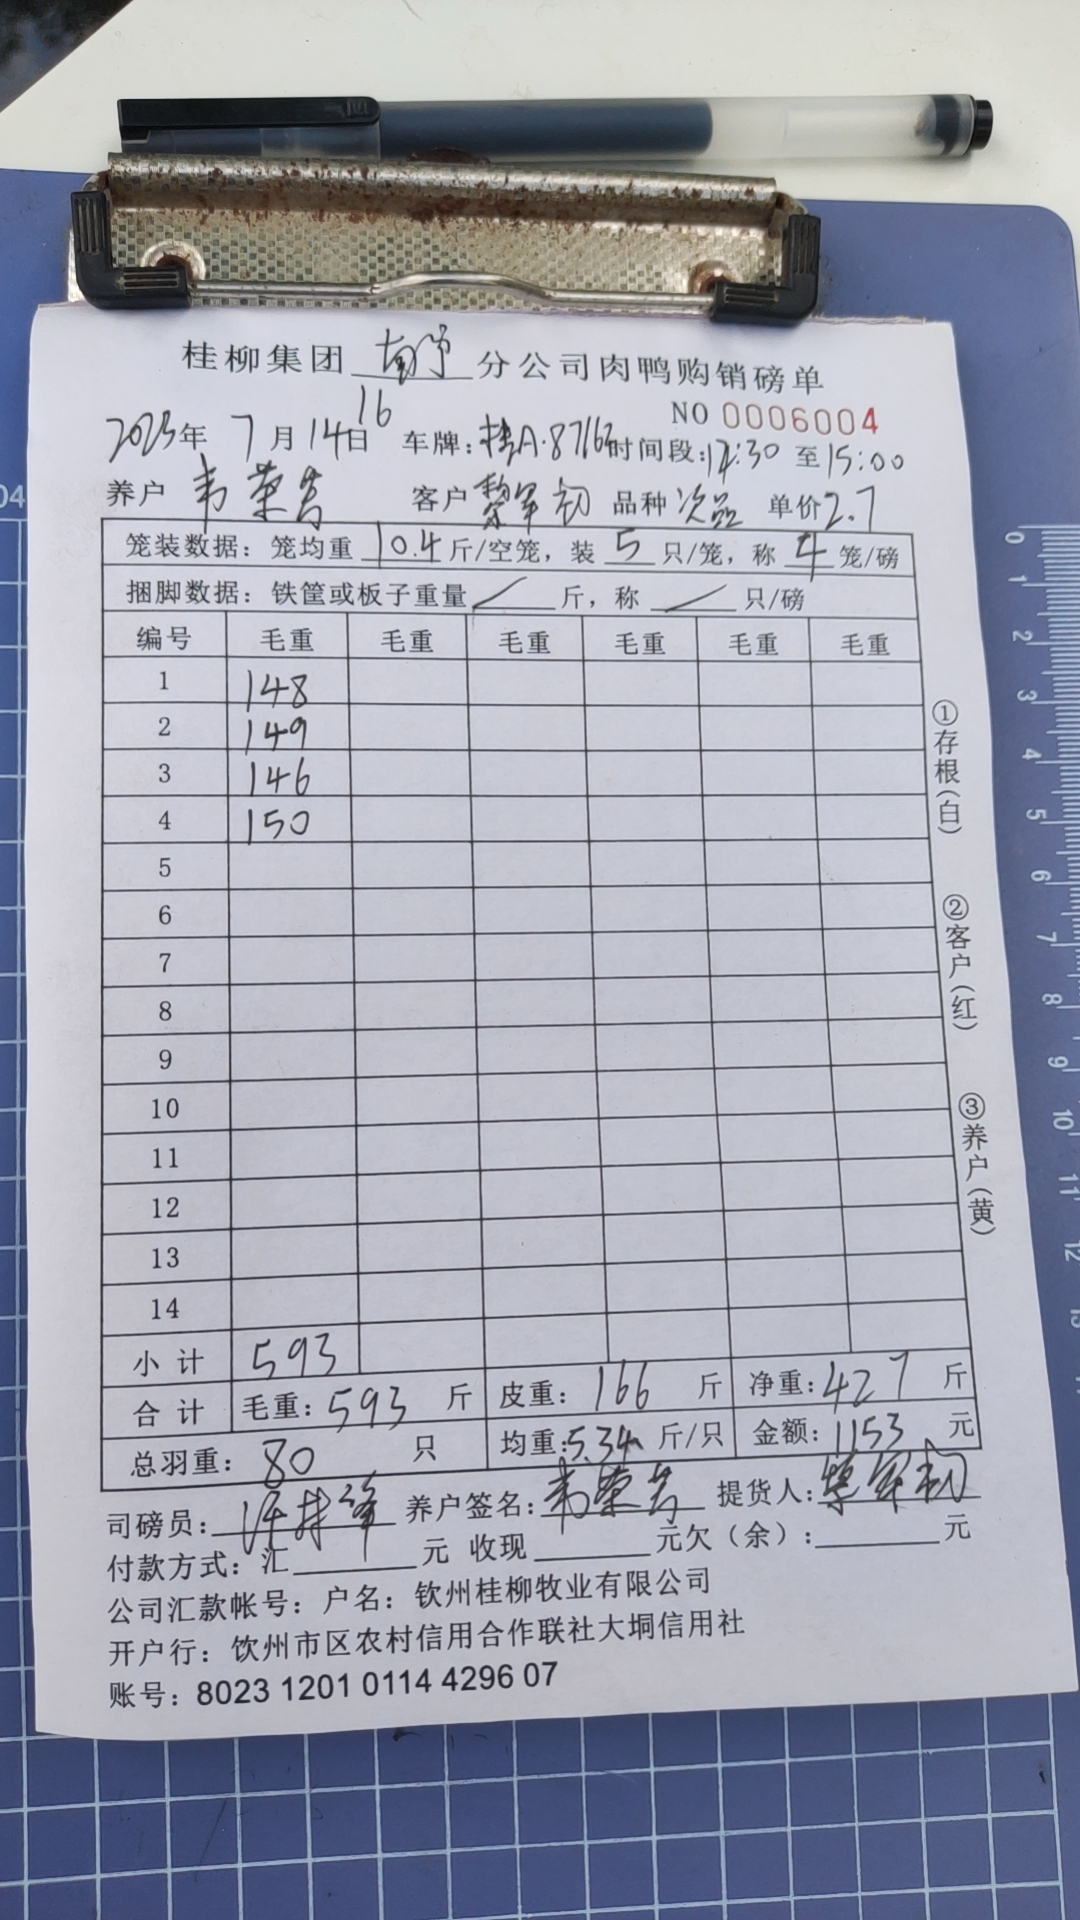 桂柳集团 南宁 分公司肉鸭购销磅单
NO 0006004
16
2023年 7月14日 车牌:桂A·87163 时间段:14:30 至15:00
养户 韦荣吉 客户 黎军初 品种 次品 单价2.7
笼装数据:笼均重 10.4 斤/空笼,装 5 只/笼,称 4 笼/磅
捆脚数据:铁筐或板子重量 / 斤,称 / 只/磅
编号 毛重 毛重 毛重 毛重 毛重 毛重
1 148
2 149
3 146
4 150
5
6
7
8
9
10
11
12
13
14
小 计 593
合 计 毛重:593 斤 皮重:166 斤 净重:427 斤
总羽重:80 只 均重:5.34 斤/只 金额:1153 元
司磅员: 养户签名:韦荣吉 提货人:黎军初
付款方式:汇 元 收现 元欠(余): 元
公司汇款帐号:户名:钦州桂柳牧业有限公司
开户行:钦州市区农村信用合作联社大垌信用社
账号:8023 1201 0114 4296 07
①存根(白)
②客户(红)
③养户(黄)
04
0
1
2
3
4
5
6
7
8
9
10
11
12
13